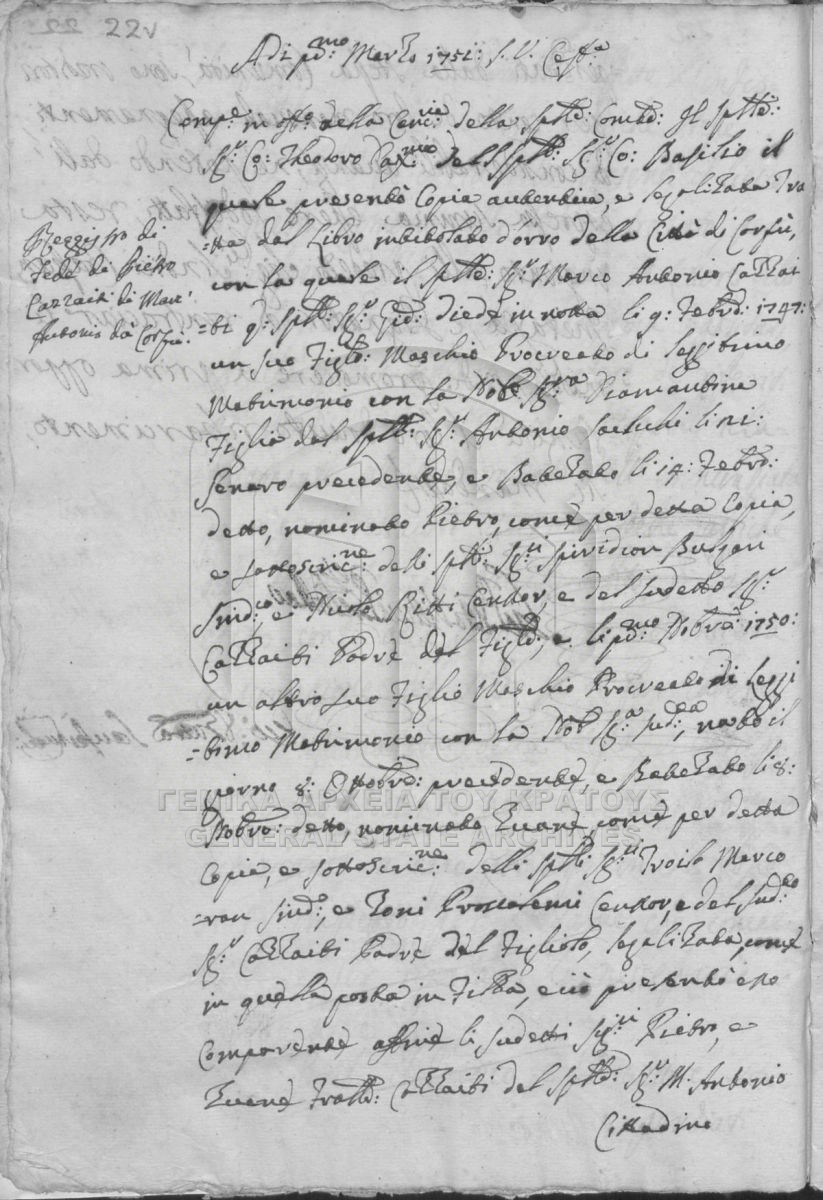 22v
Adi pdmo Marzo 1751: S. V. Cefa
Compe in offo della Cancria della Sptte: Comtà: Il Sptte:
Sigr Co: Theodoro del Sptt: Sigr Co: Basilio il
quale presentò Copia autentica, e legalizata tra
=tta dal Libro intitolato d'orro della Città di Corfù,
con la quale il Sptte: Sigr Marco Antonio Cazzai
=ti q: Sptt: Sigr diede in notta li 9: Febro: 1747:
un suo Figlio: Maschio Procreato di Leggitimo
Matrimonio con la Nobe Sigra Diamantina
Figlia del Sptt: Sigr Antonio li
Genaro precedente, e Batezato li 14: Febro:
detto, nominato Pietro, come per detta Copia,
e sottoscricne: delli Sptti: Sigri Spiridion Bulgari
Sindco, e Nicolo Ritti Censor, e del sudetto Sigr
Cazzaiti Padre del Figlio, e li pdmo Nobre 1750:
un altro suo Figlio Maschio Procreato di Leggi
=timo Matrimonio con la Nob Sigra sudta, nato il
giorno 8: Ottobre: precedente, e Batezato li 8:
Nobro: detto, nominato Zuane, come per detta
Copia, e sottoscricne: delli Sptti: Sigri Troilo Marco
=ran Sind:, e Toni Prossalemi Censor, e del sudto
Sigr Cazzaiti Padre del Figliolo, legalizata, come
in quella posta in Filza, e ciò presentò esso
Comparente affine li sudetti Sigri Pietro, e
Zuane Fratti: Cazzaiti del Sptte: Sigr M: Antonio
Cittadino
Reggistro di
Fede di Pietro
Cazzaiti di Marc'
Antonio da Corfù:
ΓΕΝΙΚΑ ΑΡΧΕΙΑ ΤΟΥ ΚΡΑΤΟΥΣ
GENERAL STATE ARCHIVES